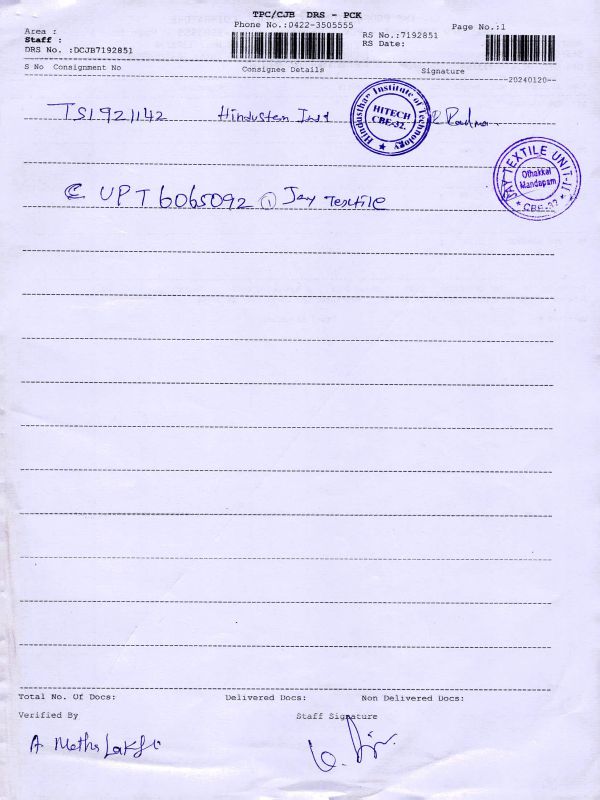 TPC/CJB DRS - PCK
Phone No.:0422-3505555
Page No.:1
Area :
Staff :
DRS No. :DCJB7192851
RS No.:7192851
RS Date:
S No Consignment No Consignee Details Signature
20240120
TS1921142 Hindustan Inst
Hindusthan Institute of Technology
HITECH
CBE-32.
€ UPT6065092 ① Jay Textile
JAY TEXTILE UNIT-II
Othakkal
Mandapam
* CBE-32 *
Total No. Of Docs: Delivered Docs: Non Delivered Docs:
Verified By Staff Signature
A